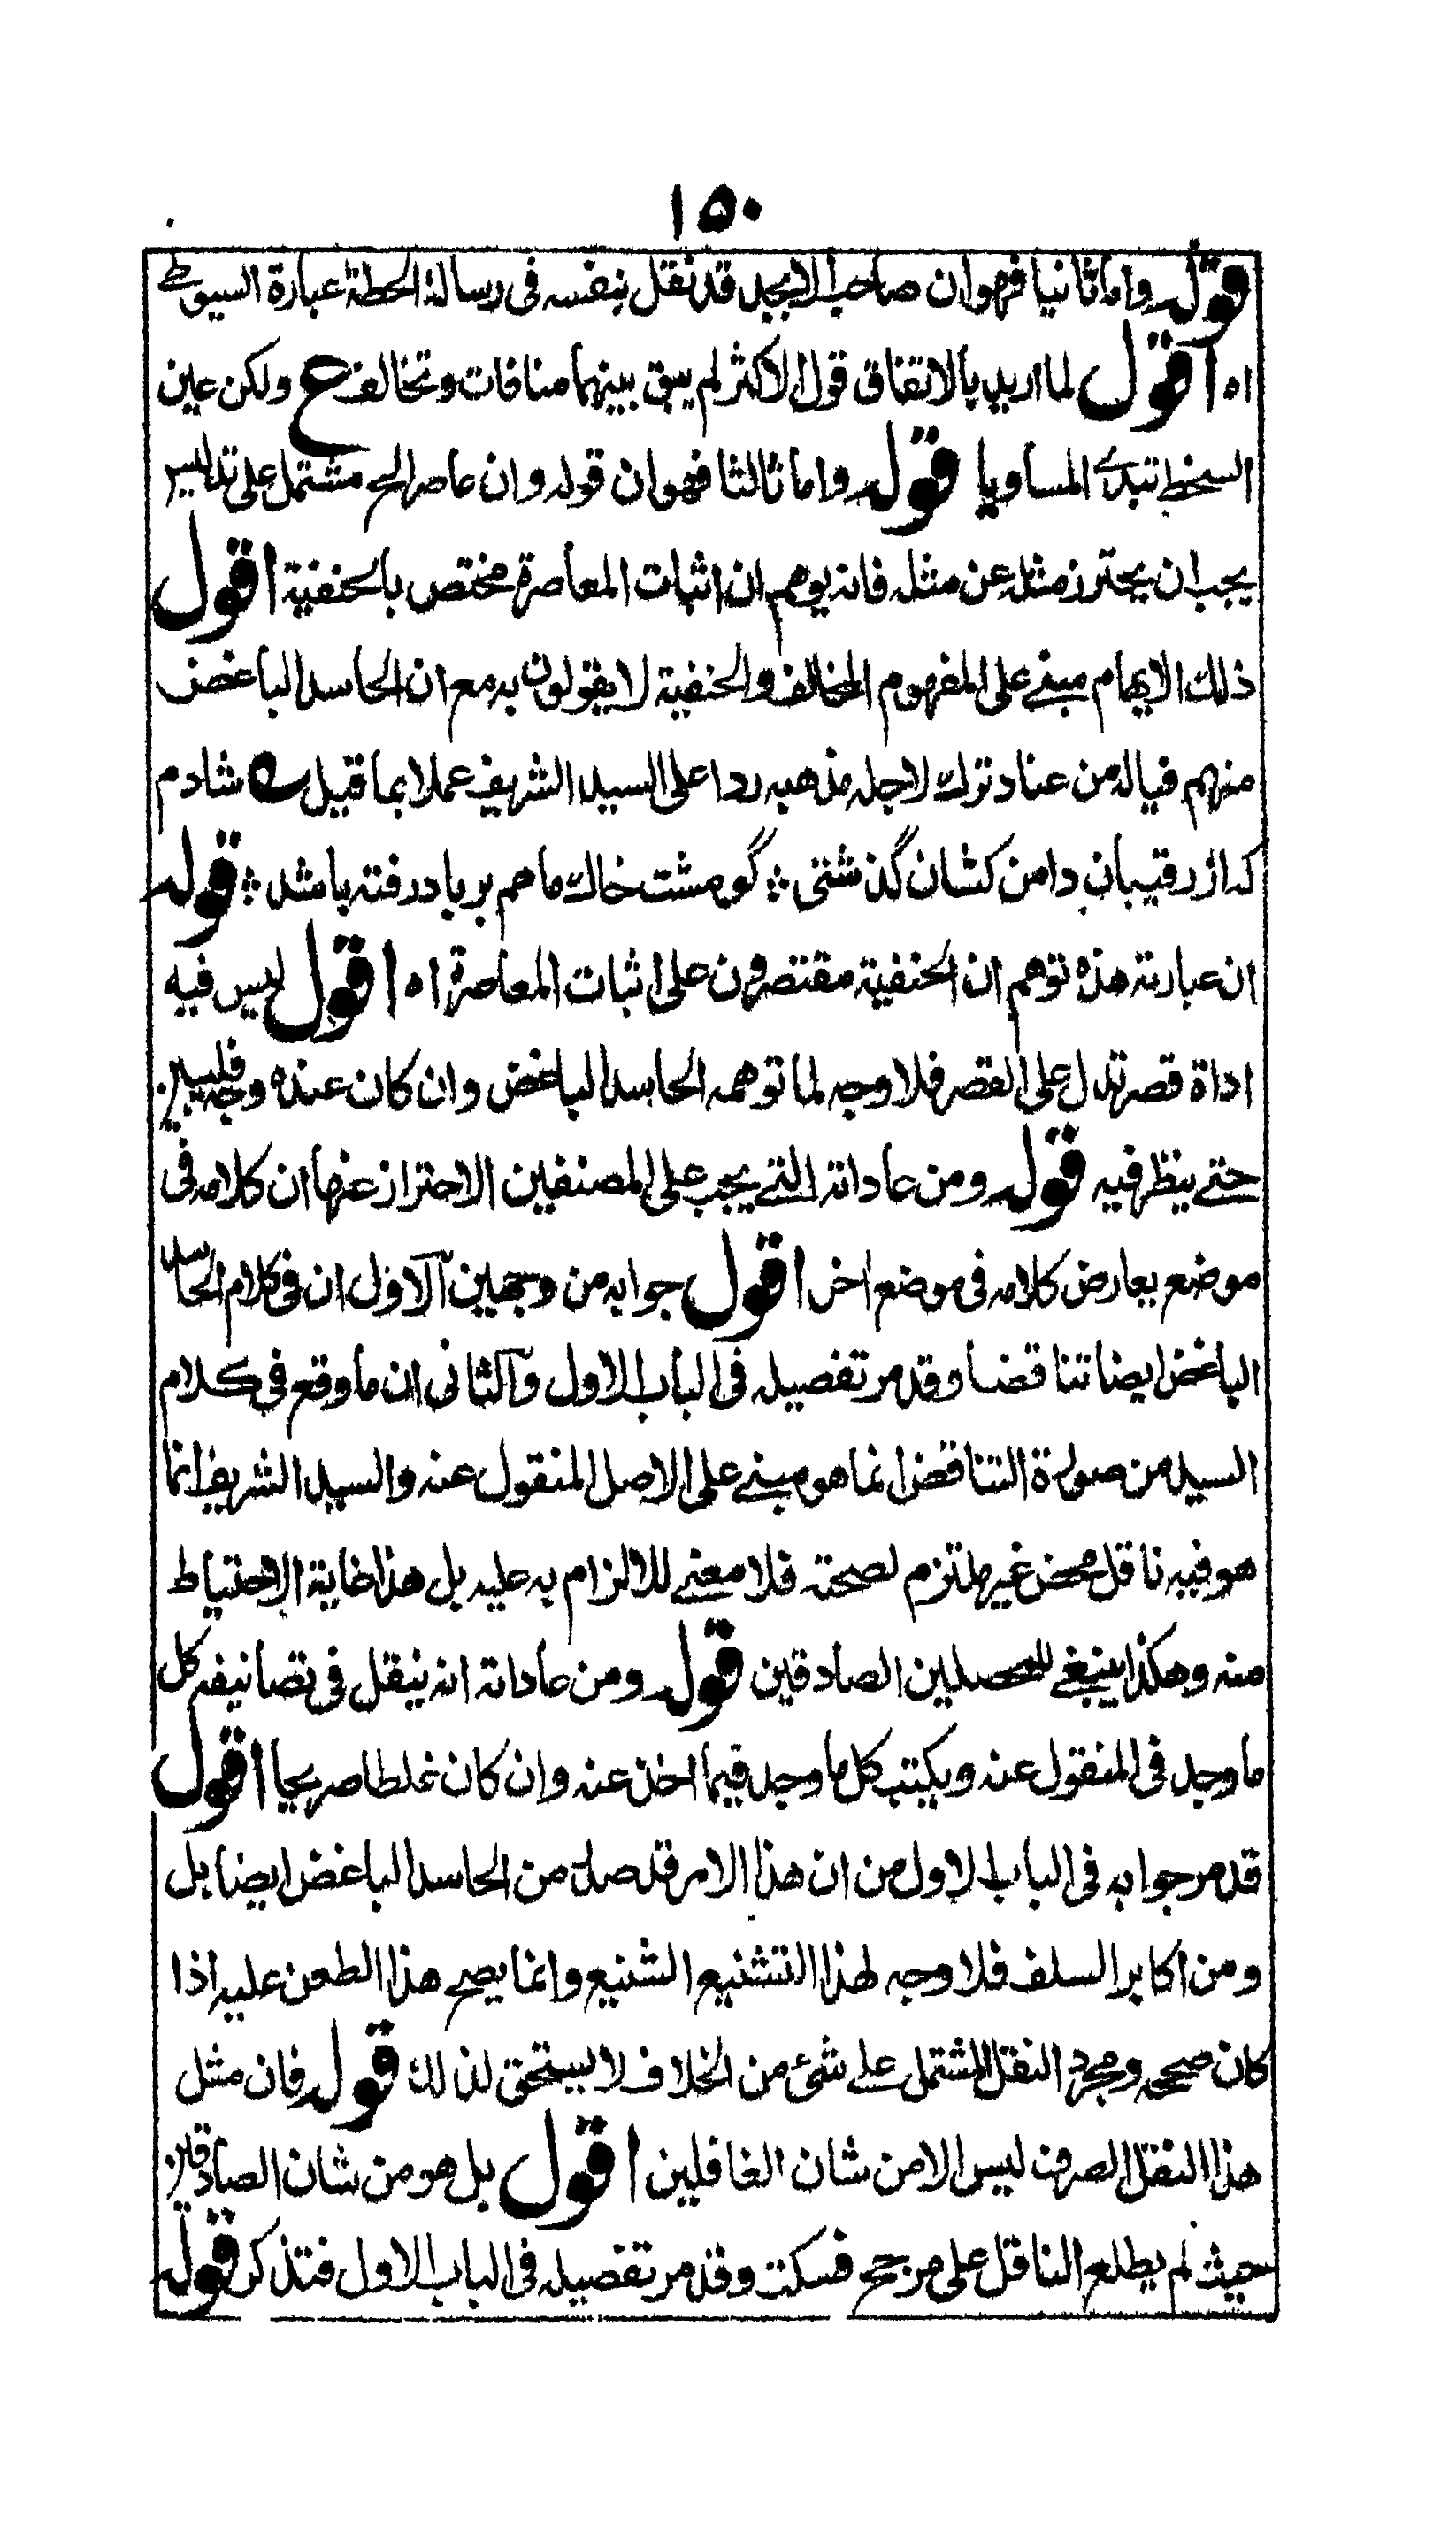 ١٥٠
قوله واما ثانيا فهو ان صاحب الابجد قد نقل بنفسه فى رسالة الحطة عبارة السيوطے
اه اقول لما اريد بالاتفاق قول الاكثر لم يبق بينهما منافات وتخالف ع ولكن عين
السخط تبدے المساويا قوله واما ثالثا فهو ان قوله وان عاصر الخ مشتمل على تدليس
يجب ان يحترز مثله عن مثله فانه يوهم ان اثبات المعاصرة مختص بالحنفية اقول
ذلك الايهام مبنے على المفهوم المخالف والحنفية لا يقولون به مع ان الحاسد الباغض
منهم فياله من عناد ترك لاجله مذهبه ردا على السيد الشريف عملا بما قيل ه شادم
كه از رقيبان دامن كشان گذشتى ؞ گو مشت خاك ما هم بر باد رفته باشد ؞ قوله
ان عبارته هذه توهم ان الحنفية مقتصرون على اثبات المعاصرة اه اقول ليس فيه
اداة قصر تدل على القصر فلا وجه لما توهمه الحاسد الباغض وان كان عنده وجه فليبين
حتے ينظر فيه قوله ومن عاداته التے يجب على المصنفين الاحتراز عنها ان كلامه فى
موضع يعارض كلامه فى موضع اخر اقول جوابه من وجهين آلاول ان فى كلام الحاسد
الباغض ايضا تناقضا وقد مر تفصيله فى الباب الاول وآلثانى ان ما وقع فى كلام
السيد من صورة التناقض انما هو مبنے على الاصل المنقول عنه والسيد الشريف انما
هو فيه ناقل محض غير ملتزم لصحته فلا معنے للالزام به عليه بل هذا غاية الاحتياط
منه وهكذا ينبغے للمحصلين الصادقين قوله ومن عاداته انه ينقل فى تصانيفه كل
ما وجد فى المنقول عنه ويكتب كل ما وجد فيما اخذ عنه وان كان غلطا صريحا اقول
قد مر جوابه فى الباب الاول من ان هذا الامر قد صدر من الحاسد الباغض ايضا بل
ومن اكابر السلف فلا وجه لهذا التشنيع الشنيع وانما يصح هذا الطعن عليه اذا
كان صححه ومجرد النقل المشتمل علے شئ من الخلاف لا يستحق لذلك قوله فان مثل
هذا النقل الصرف ليس الا من شان الغافلين اقول بل هو من شان الصادقين
حيث لم يطلع الناقل على مرجح فسكت وقد مر تفصيله فى الباب الاول فتذكر قوله